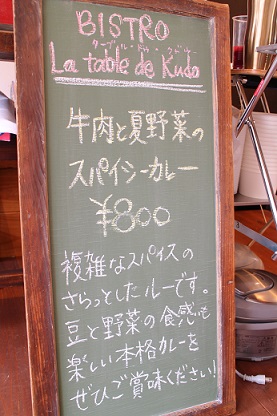 BISTRO
La table de Kudo
牛肉と夏野菜の
スパイシーカレー
¥800
複雑なスパイスの
さらっとしたルーです。
豆と野菜の食感も
楽しい本格カレーを
ぜひご賞味ください!